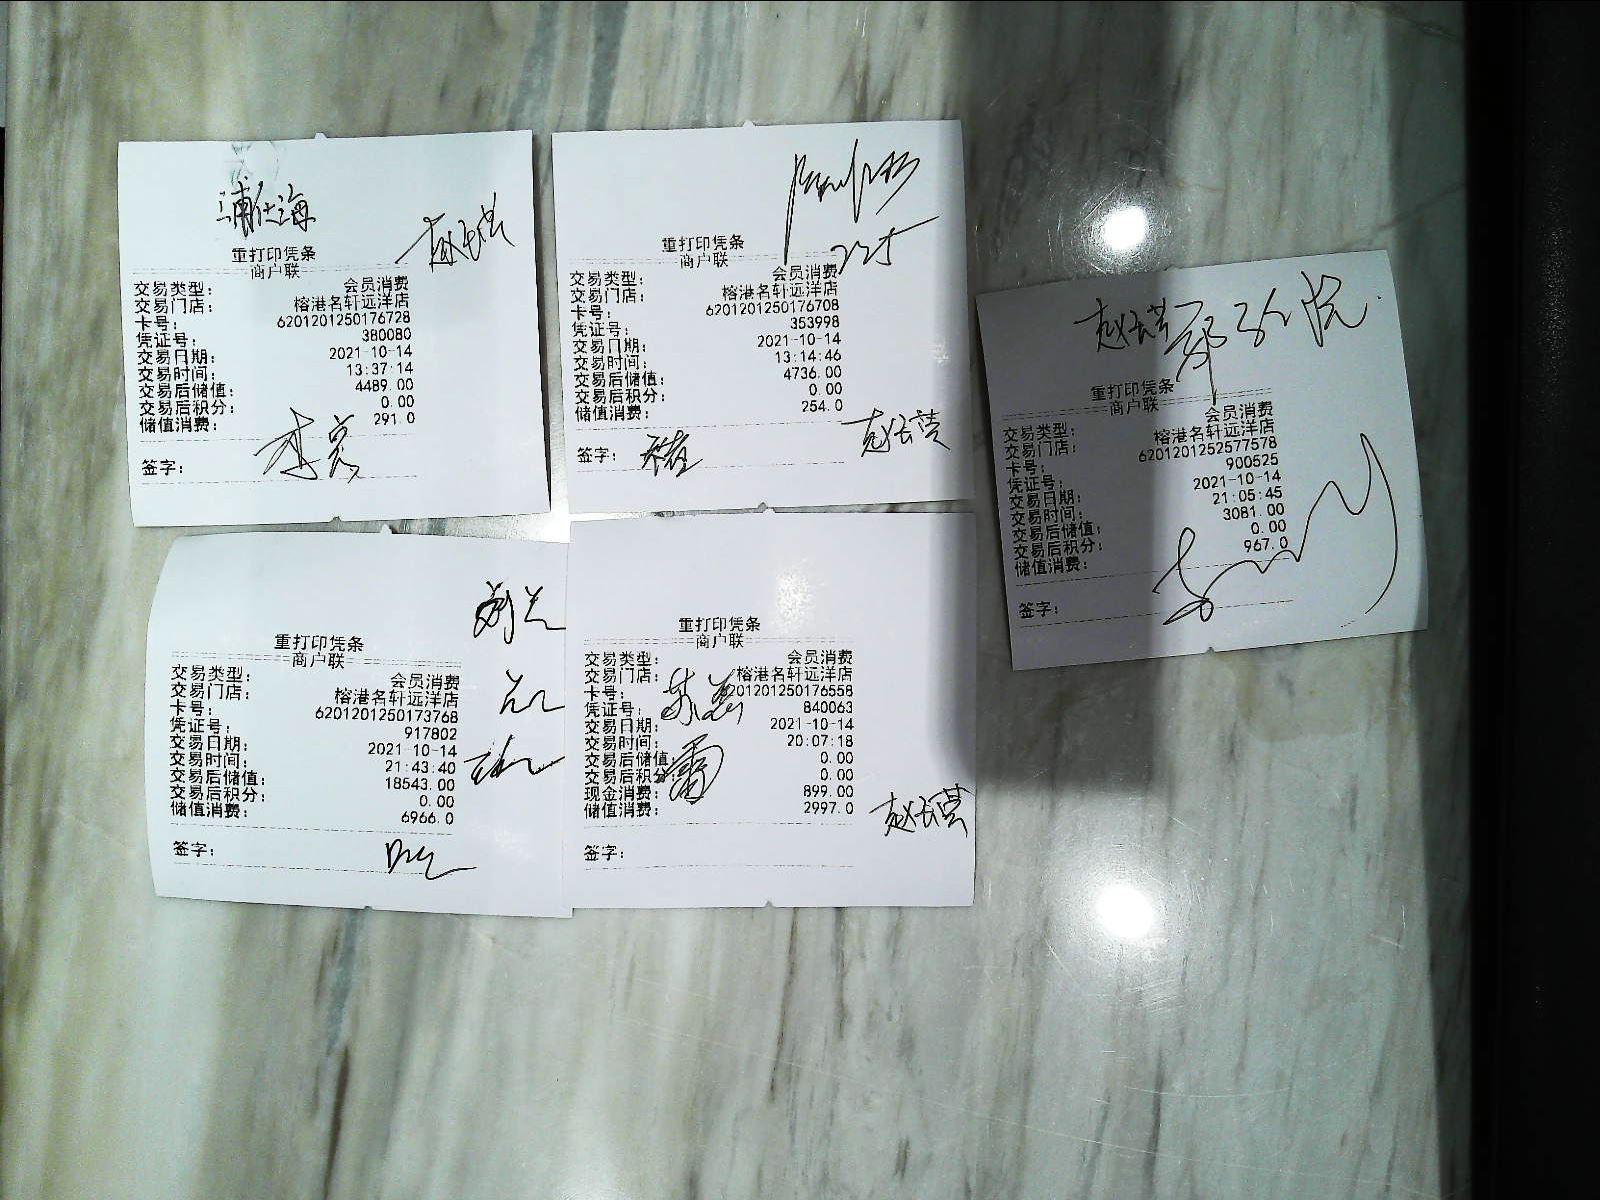 浦仕海
重打印凭条
商户联
交易类型： 会员消费
交易门店： 榕港名轩远洋店
卡号： 6201201250176728
凭证号： 380080
交易日期： 2021-10-14
交易时间： 13:37:14
交易后储值： 4489.00
交易后积分： 0.00
储值消费： 291.0
签字：
225
重打印凭条
商户联
交易类型： 会员消费
交易门店： 榕港名轩远洋店
卡号： 6201201250176708
凭证号： 353998
交易日期： 2021-10-14
交易时间： 13:14:46
交易后储值： 4736.00
交易后积分： 0.00
储值消费： 254.0
签字：
重打印凭条
商户联
交易类型： 会员消费
交易门店： 榕港名轩远洋店
卡号： 6201201252577578
凭证号： 900525
交易日期： 2021-10-14
交易时间： 21:05:45
交易后储值： 3081.00
交易后积分： 0.00
储值消费： 967.0
签字：
重打印凭条
商户联
交易类型： 会员消费
交易门店： 榕港名轩远洋店
卡号： 6201201250173768
凭证号： 917802
交易日期： 2021-10-14
交易时间： 21:43:40
交易后储值： 18543.00
交易后积分： 0.00
储值消费： 6966.0
签字：
重打印凭条
商户联
交易类型： 会员消费
交易门店： 榕港名轩远洋店
卡号： 201201250176558
凭证号： 840063
交易日期： 2021-10-14
交易时间： 20:07:18
交易后储值： 0.00
交易后积分： 0.00
现金消费： 899.00
储值消费： 2997.0
签字：